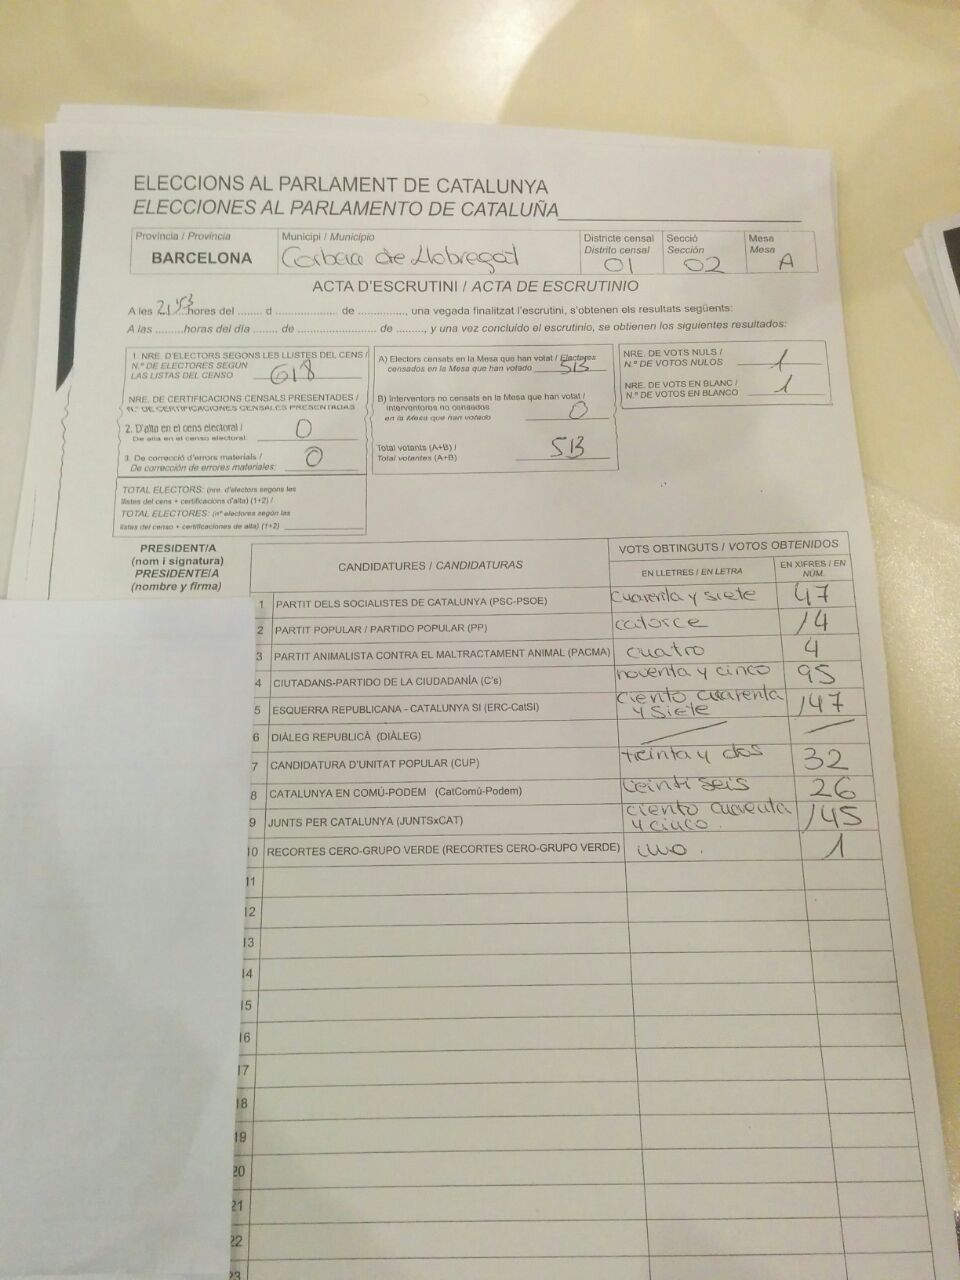 ELECCIONS AL PARLAMENT DE CATALUNYA
ELECCIONES AL PARLAMENTO DE CATALUÑA
Província / Provincia
BARCELONA
Municipi / Municipio
Corbera de Llobregat
Districte censal
Distrito censal
01
Secció
Sección
02
Mesa
Mesa
A
ACTA D'ESCRUTINI / ACTA DE ESCRUTINIO
A les 21'53 hores del ....... d .................... de ..............., una vegada finalitzat l'escrutini, s'obtenen els resultats següents:
A las .........horas del día ....... de .................... de ........., y una vez concluido el escrutinio, se obtienen los siguientes resultados:
1. NRE. D'ELECTORS SEGONS LES LLISTES DEL CENS /
N.º DE ELECTORES SEGÚN
LAS LISTAS DEL CENSO 618
NRE. DE CERTIFICACIONS CENSALS PRESENTADES /
N.º DE CERTIFICACIONES CENSALES PRESENTADAS
2. D'alta en el cens electoral /
De alta en el censo electoral: 0
3. De correcció d'errors materials /
De corrección de errores materiales: 0
TOTAL ELECTORS: (nre. d'electors segons les
llistes del cens + certificacions d'alta) (1+2) /
TOTAL ELECTORES: (nº electores según las
listas del censo + certificaciones de alta) (1+2)
A) Electors censats en la Mesa que han votat / Electores
censados en la Mesa que han votado 513
B) Interventors no censats en la Mesa que han votat /
Interventores no censados
en la Mesa que han votado 0
Total votants (A+B) /
Total votantes (A+B) 513
NRE. DE VOTS NULS /
N.º DE VOTOS NULOS 1
NRE. DE VOTS EN BLANC /
N.º DE VOTOS EN BLANCO 1
PRESIDENT/A
(nom i signatura)
PRESIDENTE/A
(nombre y firma)
CANDIDATURES / CANDIDATURAS
VOTS OBTINGUTS / VOTOS OBTENIDOS
EN LLETRES / EN LETRA
EN XIFRES / EN
NÚM.
1 PARTIT DELS SOCIALISTES DE CATALUNYA (PSC-PSOE) cuarenta y siete 47
2 PARTIT POPULAR / PARTIDO POPULAR (PP) catorce 14
3 PARTIT ANIMALISTA CONTRA EL MALTRACTAMENT ANIMAL (PACMA) cuatro 4
4 CIUTADANS-PARTIDO DE LA CIUDADANÍA (C's) noventa y cinco 95
5 ESQUERRA REPUBLICANA - CATALUNYA SI (ERC-CatSI) ciento cuarenta y siete 147
6 DIÀLEG REPUBLICÀ (DIÀLEG)
7 CANDIDATURA D'UNITAT POPULAR (CUP) treinta y dos 32
8 CATALUNYA EN COMÚ-PODEM (CatComú-Podem) veinti seis 26
9 JUNTS PER CATALUNYA (JUNTSxCAT) ciento cuarenta y cinco. 145
10 RECORTES CERO-GRUPO VERDE (RECORTES CERO-GRUPO VERDE) uno. 1
11
12
13
14
15
16
17
18
19
20
21
22
23